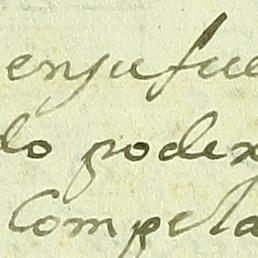 en su fue
do poder
Compela